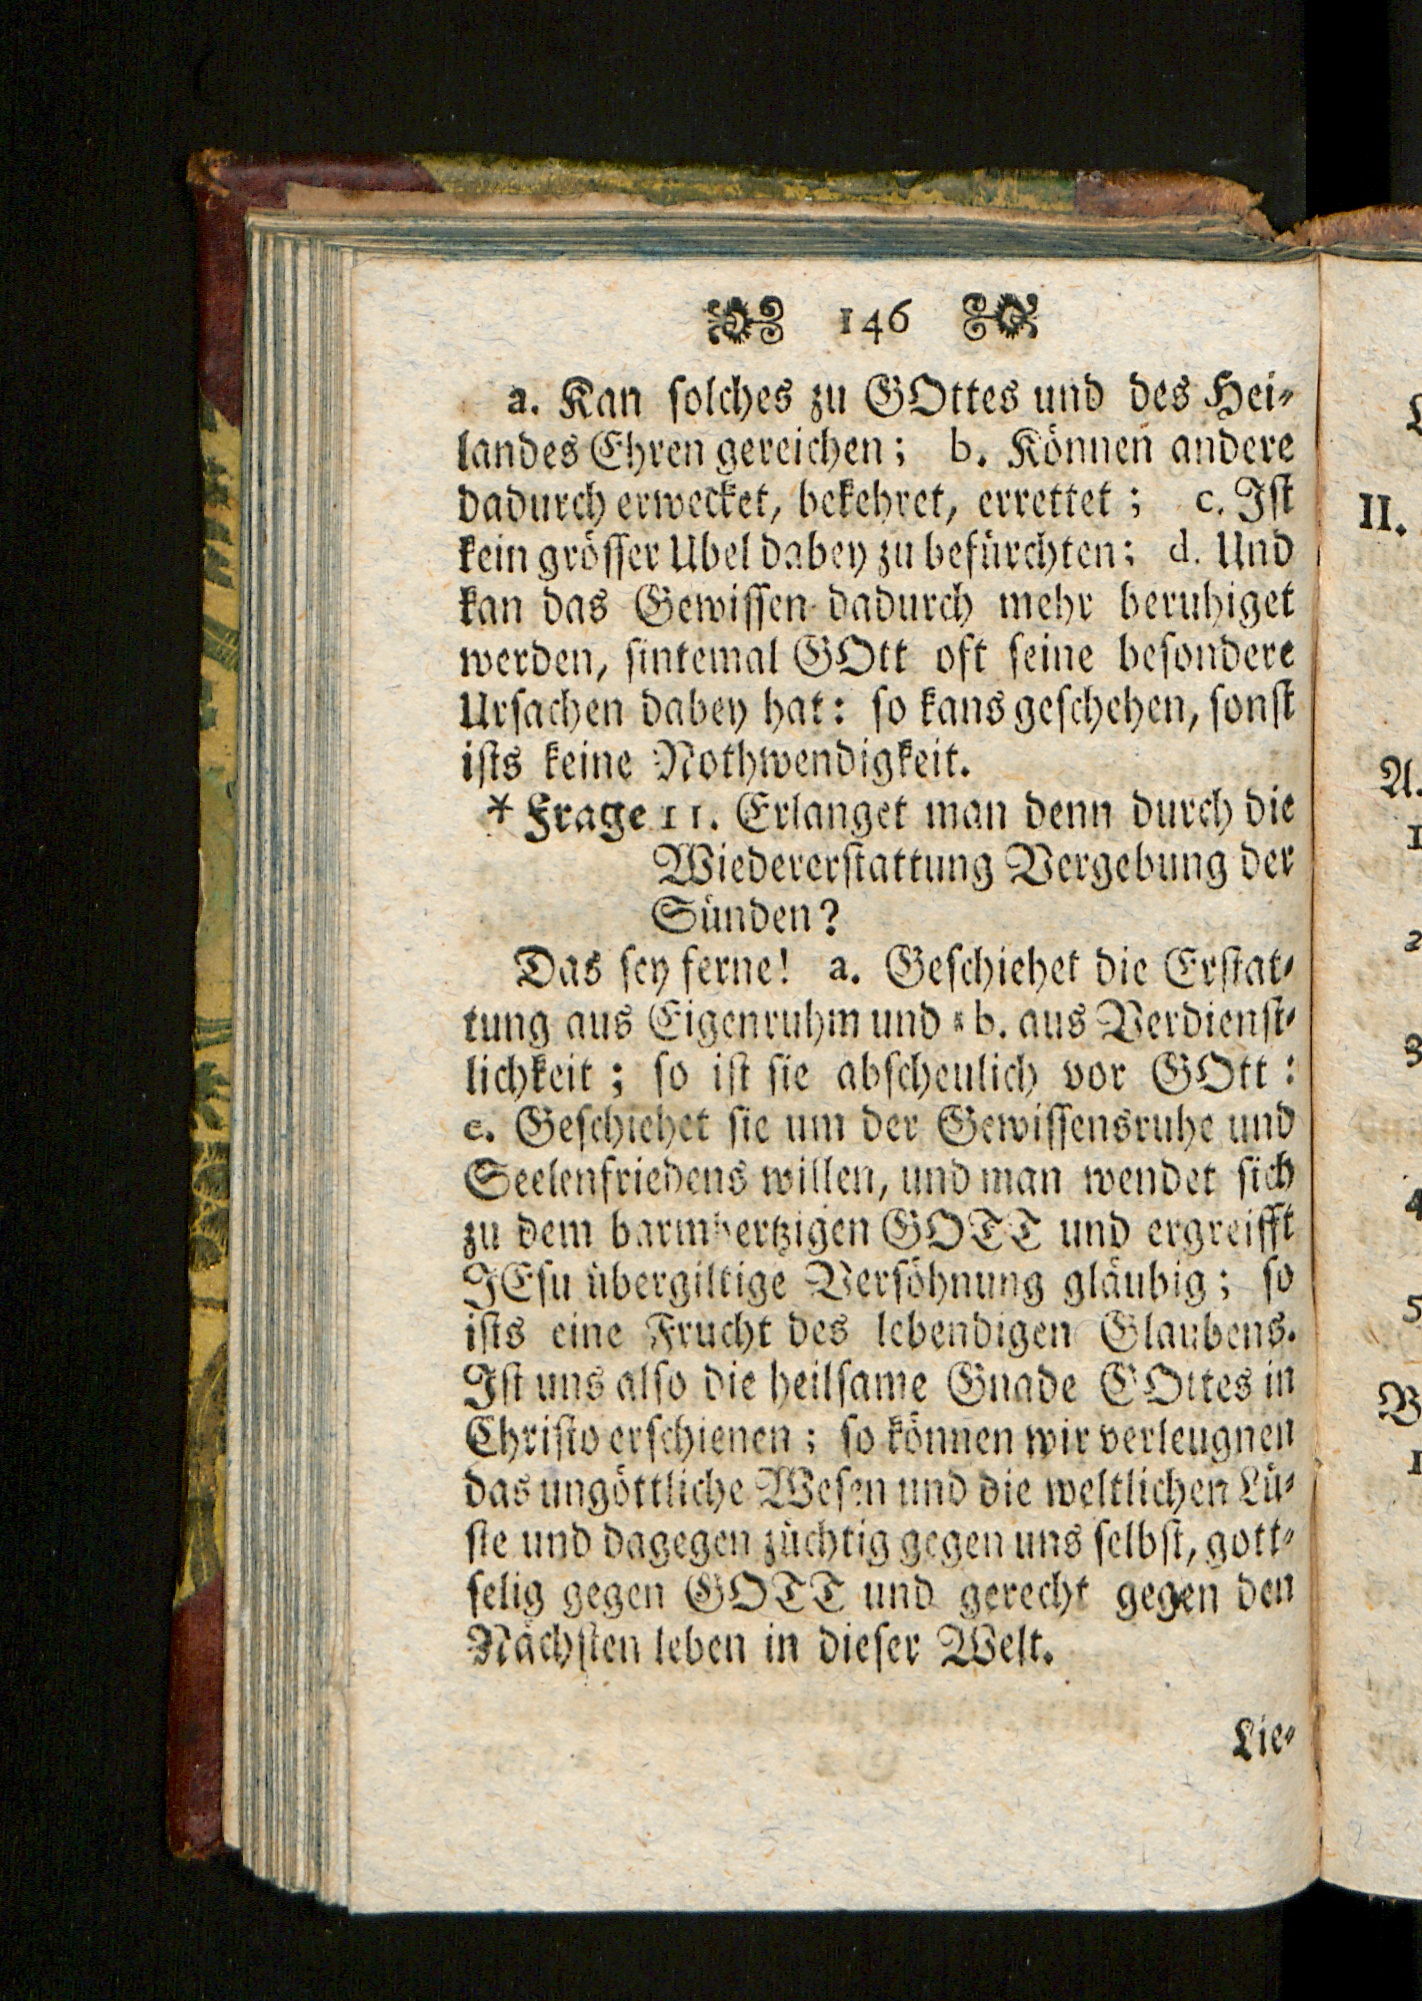 146
a. Kan solches zu GOttes und des Hei-
landes Ehren gereichen; b. Können andere
dadurch erwecket, bekehret, errettet; c. Ist
kein grösser Ubel dabey zu befürchten; d. Und
kan das Gewissen dadurch mehr beruhiget
werden, sintemal GOtt oft seine besondere
Ursachen dabey hat: so kans geschehen, sonst
ists keine Nothwendigkeit.
* Frage 11. Erlanget man denn durch die
Wiedererstattung Vergebung der
Sünden?
Das sey ferne! a. Geschiehet die Erstat-
tung aus Eigenruhm und b. aus Verdienst-
lichkeit; so ist sie abscheulich vor GOtt:
c. Geschiehet sie um der Gewissensruhe und
Seelenfriedens willen, und man wendet sich
zu dem barmhertzigen GOTT und ergreifft
JEsu übergiltige Versöhnung gläubig; so
ists eine Frucht des lebendigen Glaubens.
Ist uns also die heilsame Gnade GOttes in
Christo erschienen; so können wir verleugnen
das ungöttliche Wesen und die weltlichen Lü-
ste und dagegen züchtig gegen uns selbst, gott-
selig gegen GOTT und gerecht gegen den
Nächsten leben in dieser Welt.
Lie-
II.
A.
1
2
3
4
5
B
1